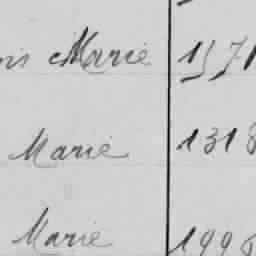 Marie 1571
Marie 1318
Marie 1996